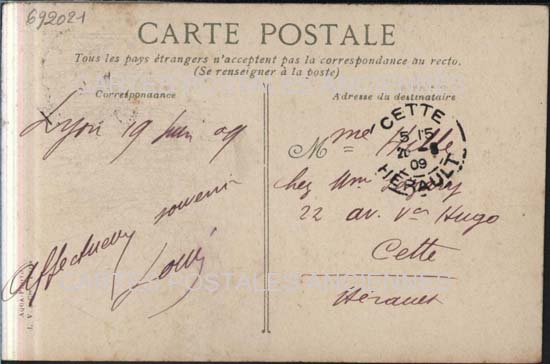 692021
CARTE POSTALE
Tous les pays étrangers n'acceptent pas la correspondance au recto.
(Se renseigner à la poste)
Correspondance
Adresse du destinataire
Lyon 19 Juin 09
Affectueux souvenir
CETTE
5 15
20
09
HERAULT
M me
chez Mme
22 av. Vor Hugo
Cette
Hérault
CARTES POSTALES ANCIENNES